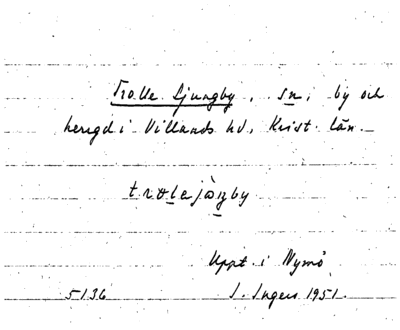 Trolle Ljungby, sn, by och
herrgd i Villands hd, Krist. län.
Uppt. i Nymö
5136 I. Ingers 1951.